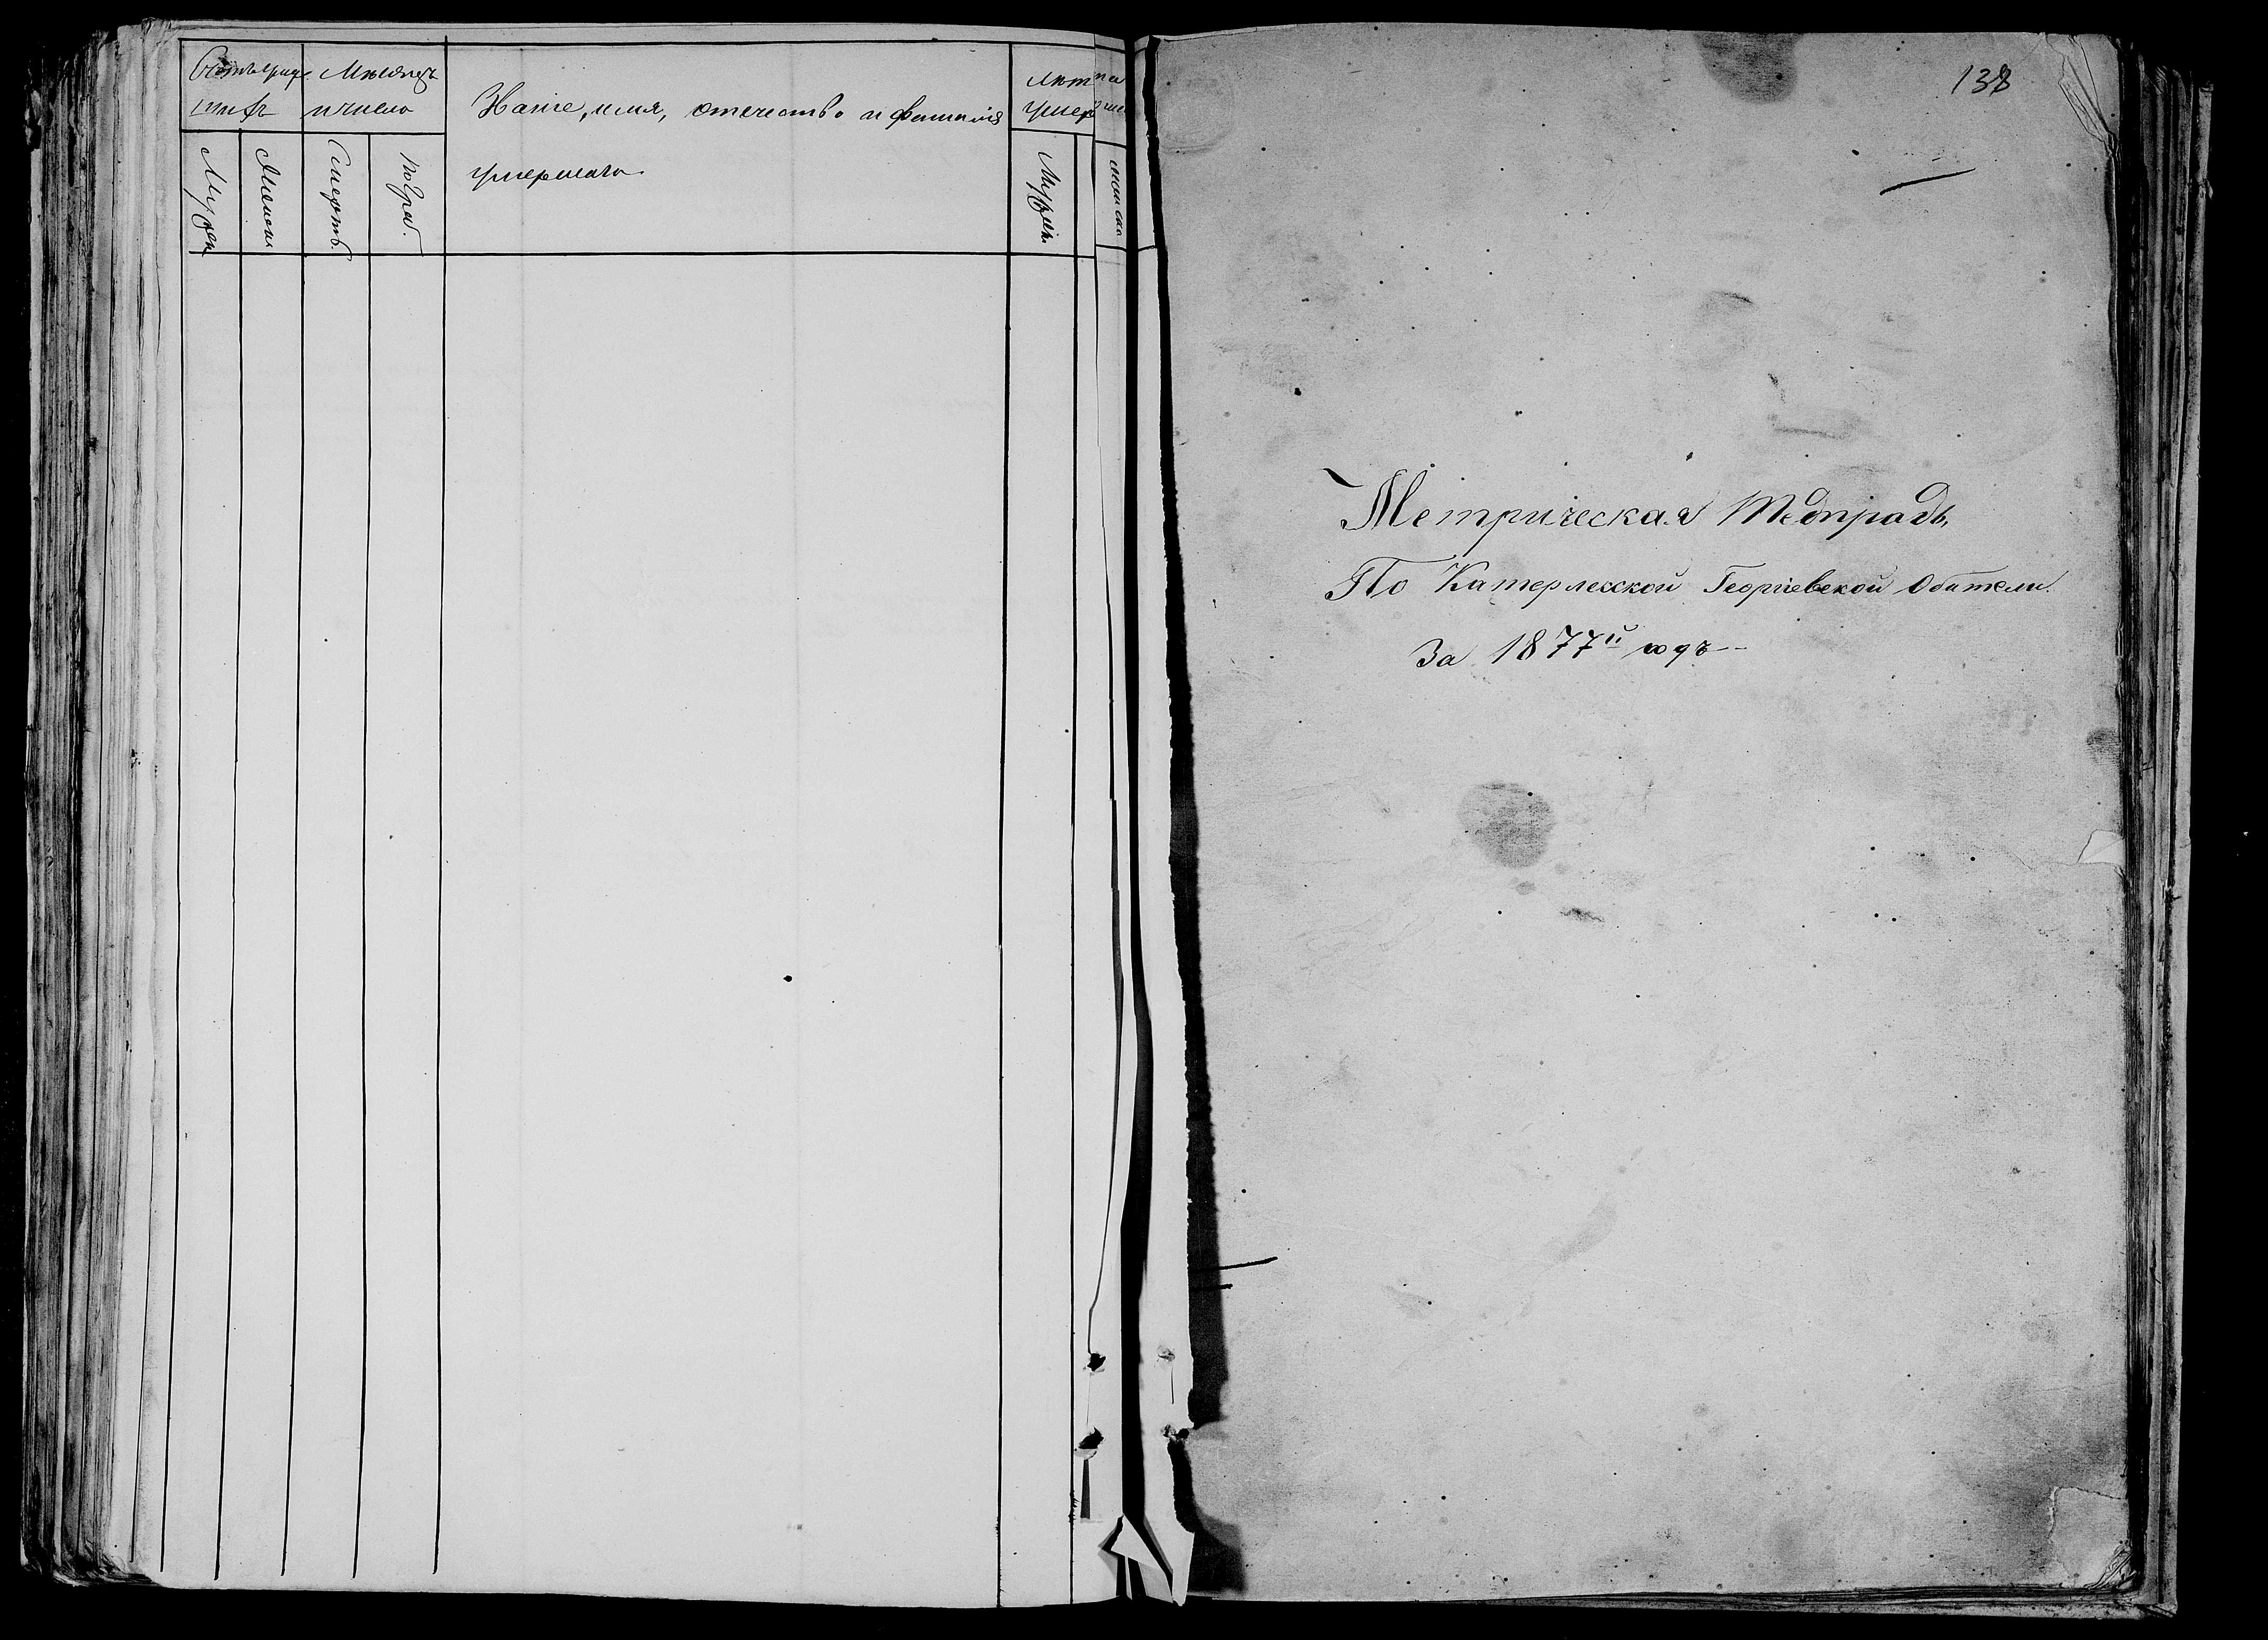 Счетъ умер- Мѣсяцъ
шихъ и число
Званіе, имя, отечество и фамилія
умершаго
Лѣта
умер
Мужск.
Женск.
Смерть.
Погреб.
Мужск.
138
Метрическая Тедпрадь
По Катерлесской Георгіевской Обители.
За 1877й годъ